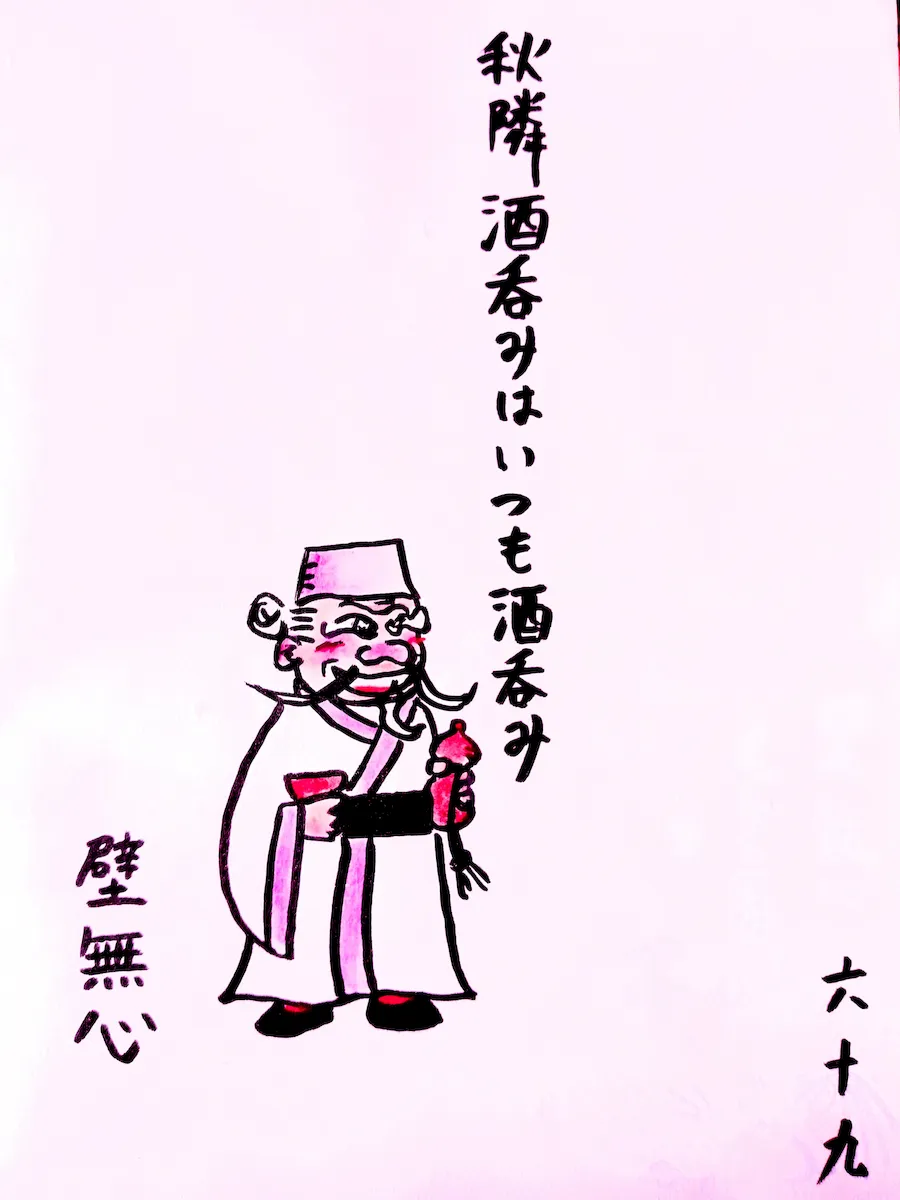 六十九
秋隣 酒呑みはいつも酒呑み
壁無心